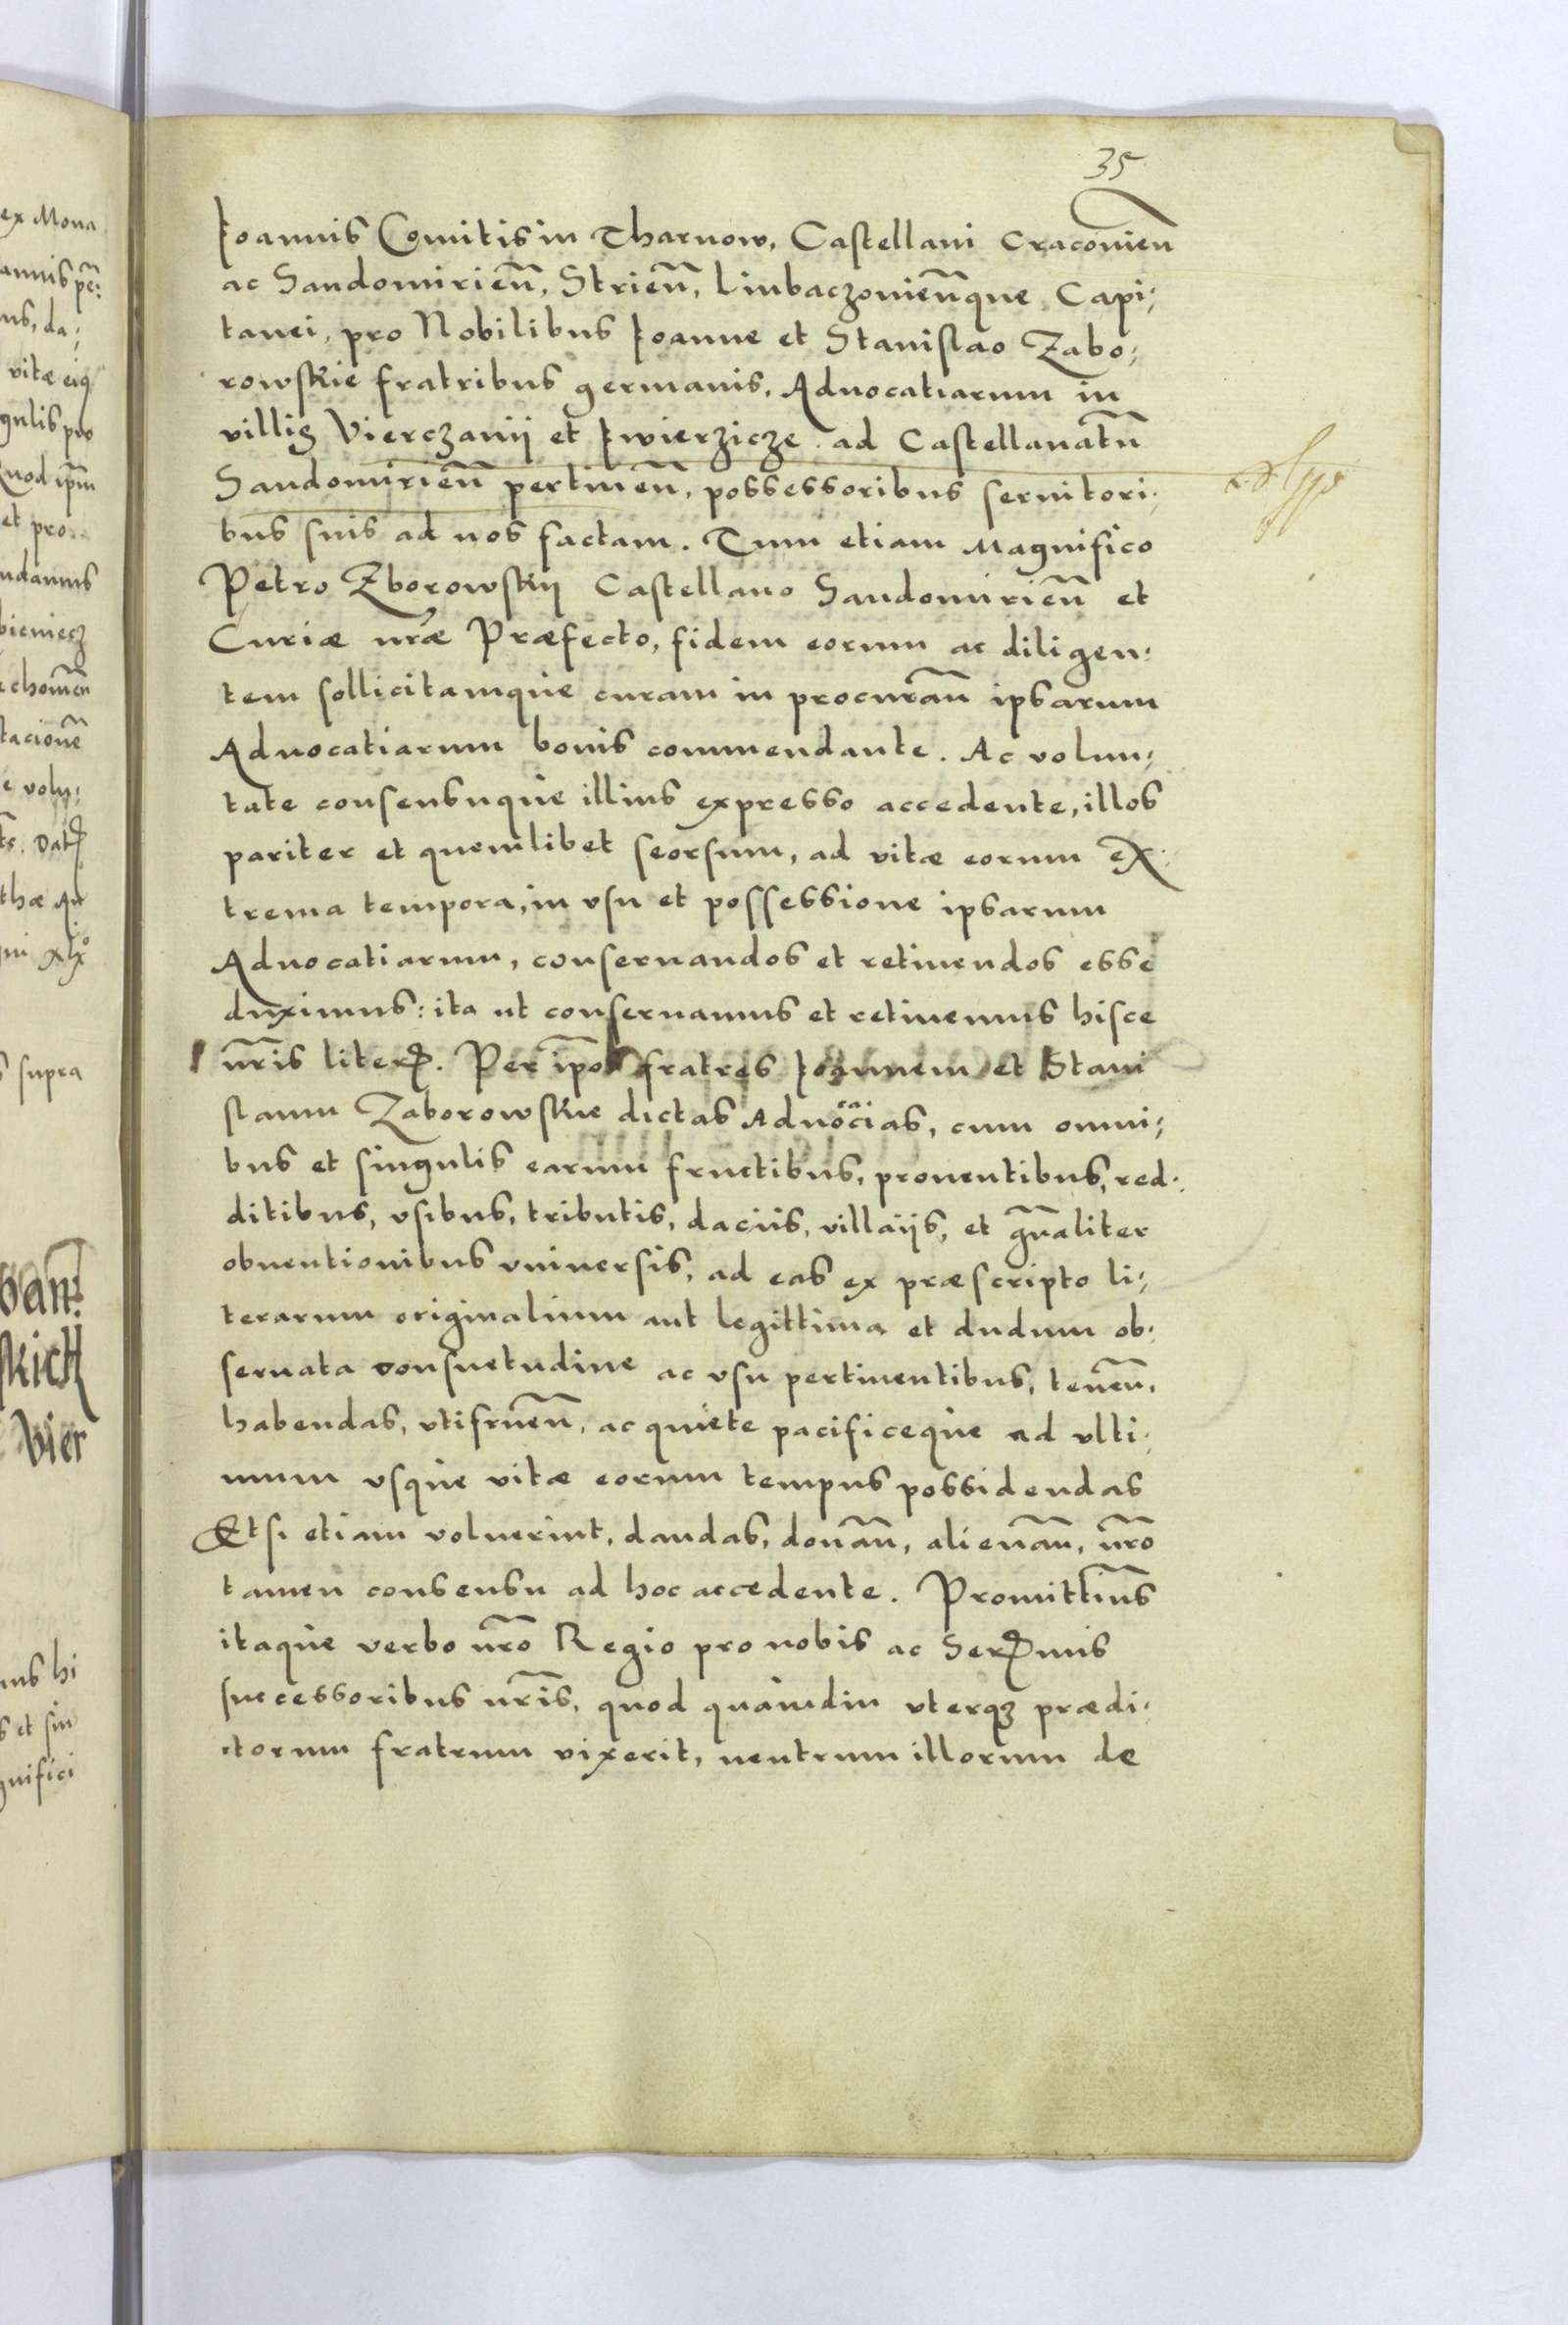 35
Joannis Comitis in Tharnow, Castellani Cracovien̄
ac Sandomirien̄, Strien̄, Liubaczovien̄que Capi;
tanei, pro Nobilibus Joanne et Stanislao Zabo;
rowskie fratribus germanis, Advocatiarum in
villis Vierczanij et Iwierzicze ad Castellanatū
Sandomirien̄ pertinen̄, possessoribus servitori;
bus suis ad nos factam. Tum etiam Magnifico
Petro Zborowskij Castellano Sandomirien̄ et
Curiæ nr̄æ Præfecto, fidem eorum ac diligen;
tem sollicitamque curam in procuran̄ ipsarum
Advocatiarum bonis commendante. Ac volun;
tate consensuque illius expresso accedente, illos
pariter et quemlibet seorsum, ad vitæ eorum ex;
trema tempora, in usu et possessione ipsarum
Advocatiarum, conservandos et retinendos esse
duximus: ita ut conservamus et retinemus hisce
nr̄is literꝭ. Per ip̄os fratres Joannem et Stani
slaum Zaborowskie dictas Advōcias, cum omni;
bus et singulis earum fructibus, proventibus, red;
ditibus, vsibus, tributis, dacijs, villaijs, et gn̄aliter
obventionibus vniversis, ad eas ex præscripto li;
terarum originalium aut legittima et dudum ob;
servata consuetudine ac vsu pertinentibus, tenen̄,
habendas, vtifruen̄, ac quiete pacificeque ad vlti;
mum vsque vitæ eorum tempus possidendas
Et si etiam voluerint, dandas, donan̄, alienan̄, nr̄o
tamen consensu ad hoc accedente. Promittim̄s
itaque verbo nr̄o Regio pro nobis ac Serꝭmis
successoribus nr̄is, quod quamdiu vterqꝫ prædi;
ctorum fratrum vixerit, neutrum illorum de
ex Mona
vitæ eiꝰ
et pro
supra
Vier
et sin
gnifici